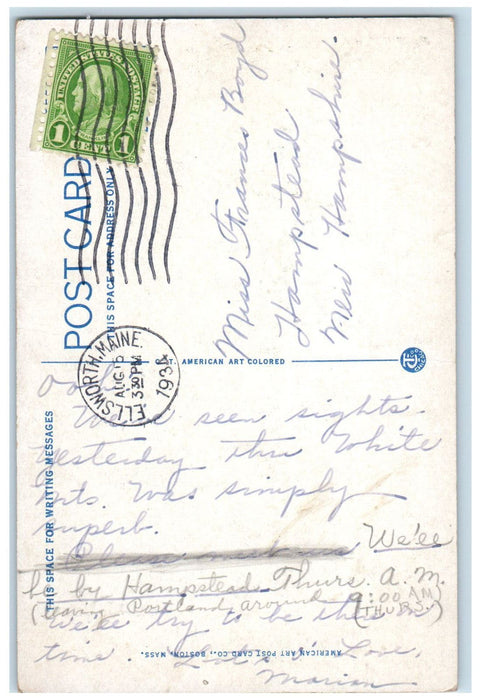 UNITED STATES POSTAGE
1 CENT 1
POST CARD
THIS SPACE FOR ADDRESS ONLY
Miss Frances Boyd
Hampstead
New Hampshire.
ELLSWORTH, MAINE.
AUG
330PM
193
ST. AMERICAN ART COLORED
THIS SPACE FOR WRITING MESSAGES
Ooh!
We've seen sights.
Yesterday thru White
Mts. Was simply
superb.
Please meet us We'ee
be by Hampstead Thurs. A.M.
(leaving Portland around 9:00 AM
THURS.)
We'ee try to be there on
time. Love,
Marian.
AMERICAN ART POST CARD CO., BOSTON, MASS.